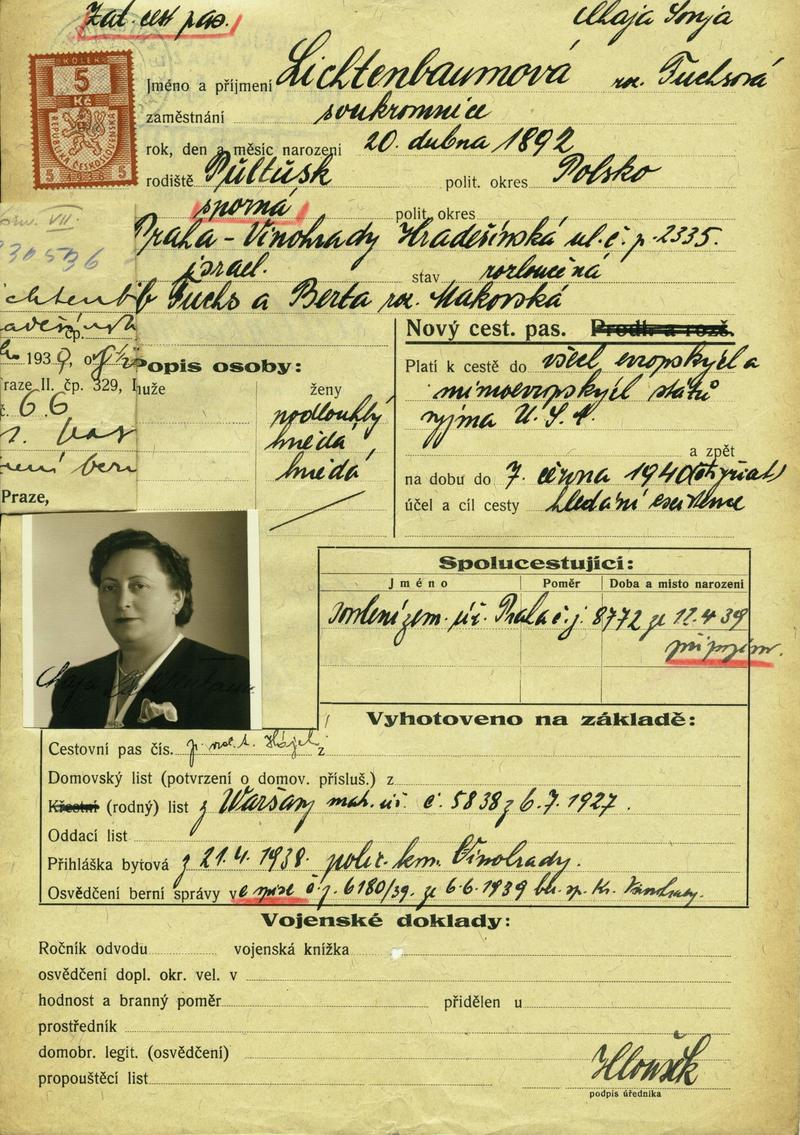 Zat. cest pas.
Maja Sonja
KOLEK
5
Kč
REPUBLIKA ČESKOSLOVENSKÁ
5 1938 5
Jméno a příjmení Lichtenbaumová roz. Fuchsová
zaměstnání soukromnice
rok, den a měsíc narození 20. dubna 1892
rodiště Pultusk polit. okres Polsko
sporná polit. okres
Praha - Vinohrady Hradešínská ul. č. p. 2335.
israel. stav rozloučená
Fuchs a Berta roz. Makovská
VII.
30536
čp.
193
raze II. čp. 329, I
č. 66
Praze,
Popis osoby:
muže ženy
podlouhlý
hnědá
hnědá
Nový cest. pas. Prodl. a rozš.
Platí k cestě do všech evropských a
mimoevropských států
vyjma U. S. A.
a zpět
na dobu do 7. června 1940
účel a cíl cesty hledání existence
Spolucestující:
Jméno Poměr Doba a místo narození
zem. úř. Praha č. j. 8772 ze 12.4.39
připojen.
Vyhotoveno na základě:
Cestovní pas čís. z
Domovský list (potvrzení o domov. přísluš.) z
Křestní (rodný) list z Waršavy mat. úř. č. 5838 z 6.7.1927.
Oddací list
Přihláška bytová z 21.4.1938. polic. kom. Vinohrady.
Osvědčení berní správy ve spise č. j. 6180/39. ze 6.6.1939 ber. sp. Kr. Vinohrady.
Vojenské doklady:
Ročník odvodu vojenská knížka
osvědčení dopl. okr. vel. v
hodnost a branný poměr přidělen u
prostředník
domobr. legit. (osvědčení)
propouštěcí list
Hloušek
podpis úředníka